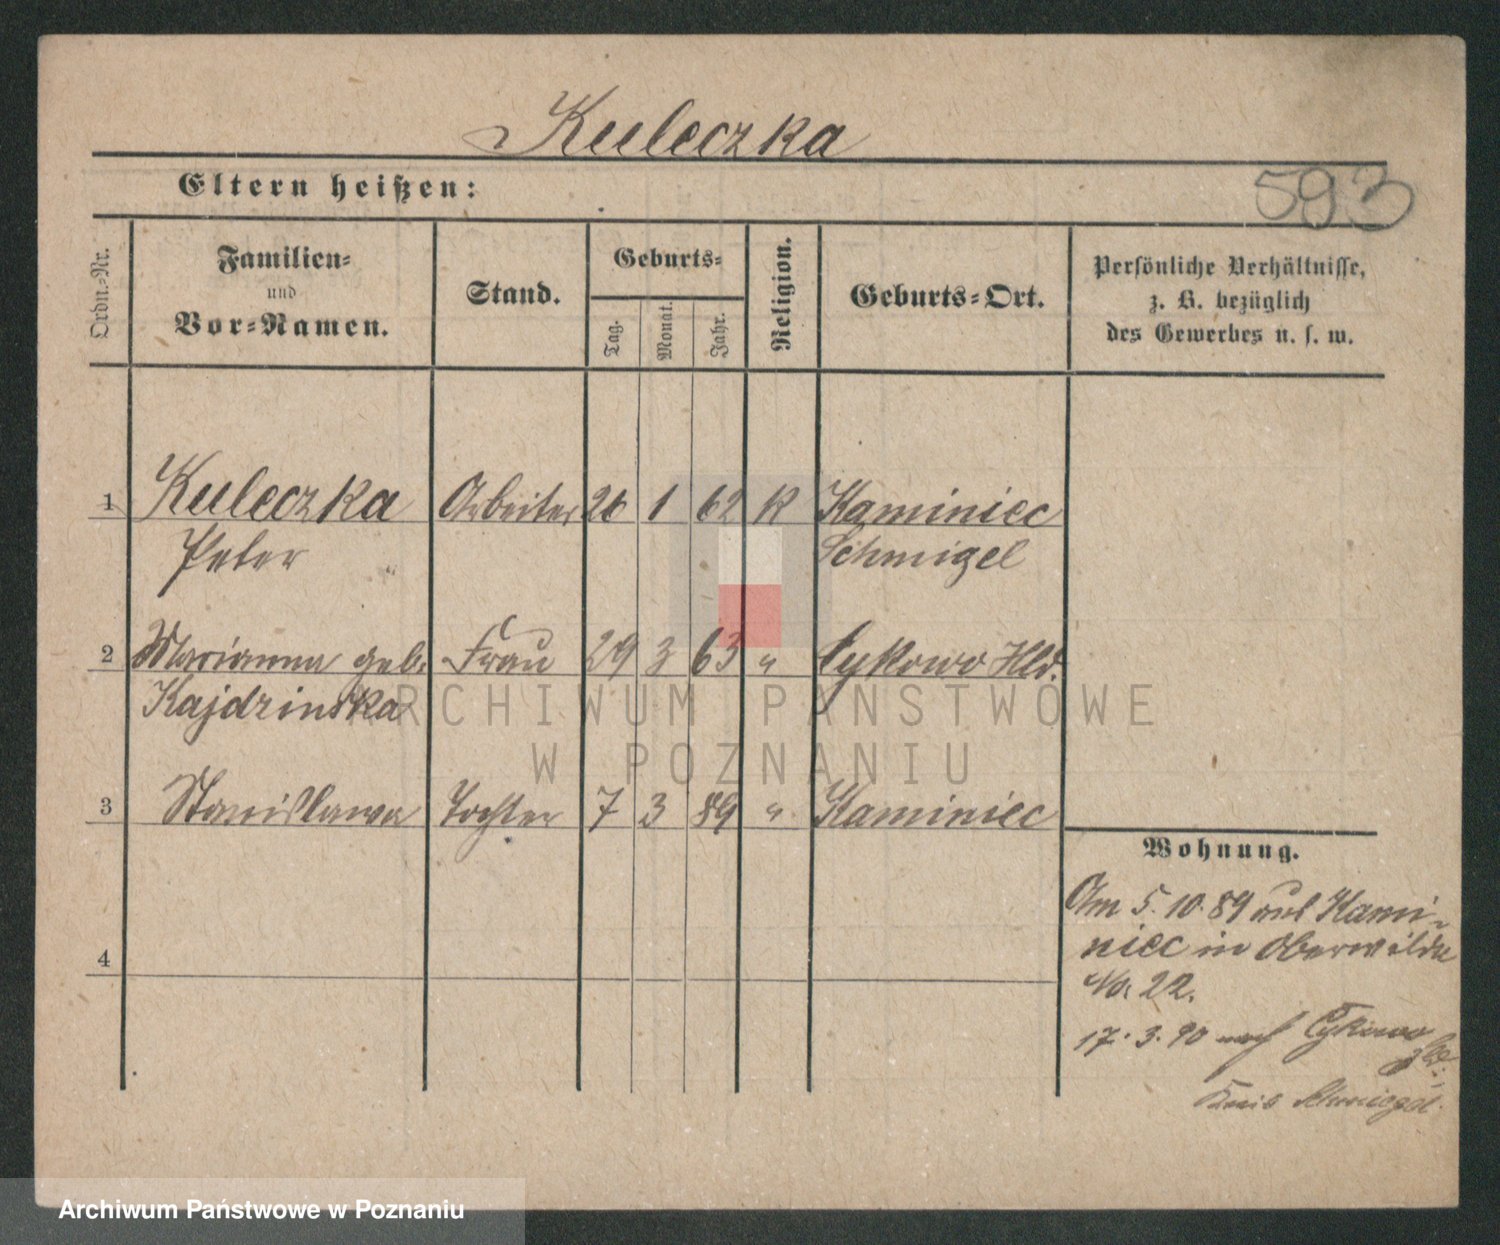 Kuleczka
Eltern heißen:
593
Ordn.-Nr.
Familien-
und
Vor-Namen.
Stand.
Geburts-
Tag.
Monat.
Jahr.
Religion.
Geburts-Ort.
Persönliche Verhältnisse,
z. B. bezüglich
des Gewerbes u. s. w.
1 Kuleczka Arbeiter 26 1 62 K Kaminiec
Peter Schmigel
2 Marianna geb. Frau 29 3 63 " Cykowo Hld.
Kajdzinska
3 Stanislawa Tochter 7 3 89 " Kaminiec
4
Wohnung.
Am 5.10.89 aus Kami-
niec in Oberwilda
No. 22.
17.3.90 nach Cykowo
Hld.
Kreis Schmiegel.
ARCHIWUM PAŃSTWOWE
W POZNANIU
Archiwum Państwowe w Poznaniu